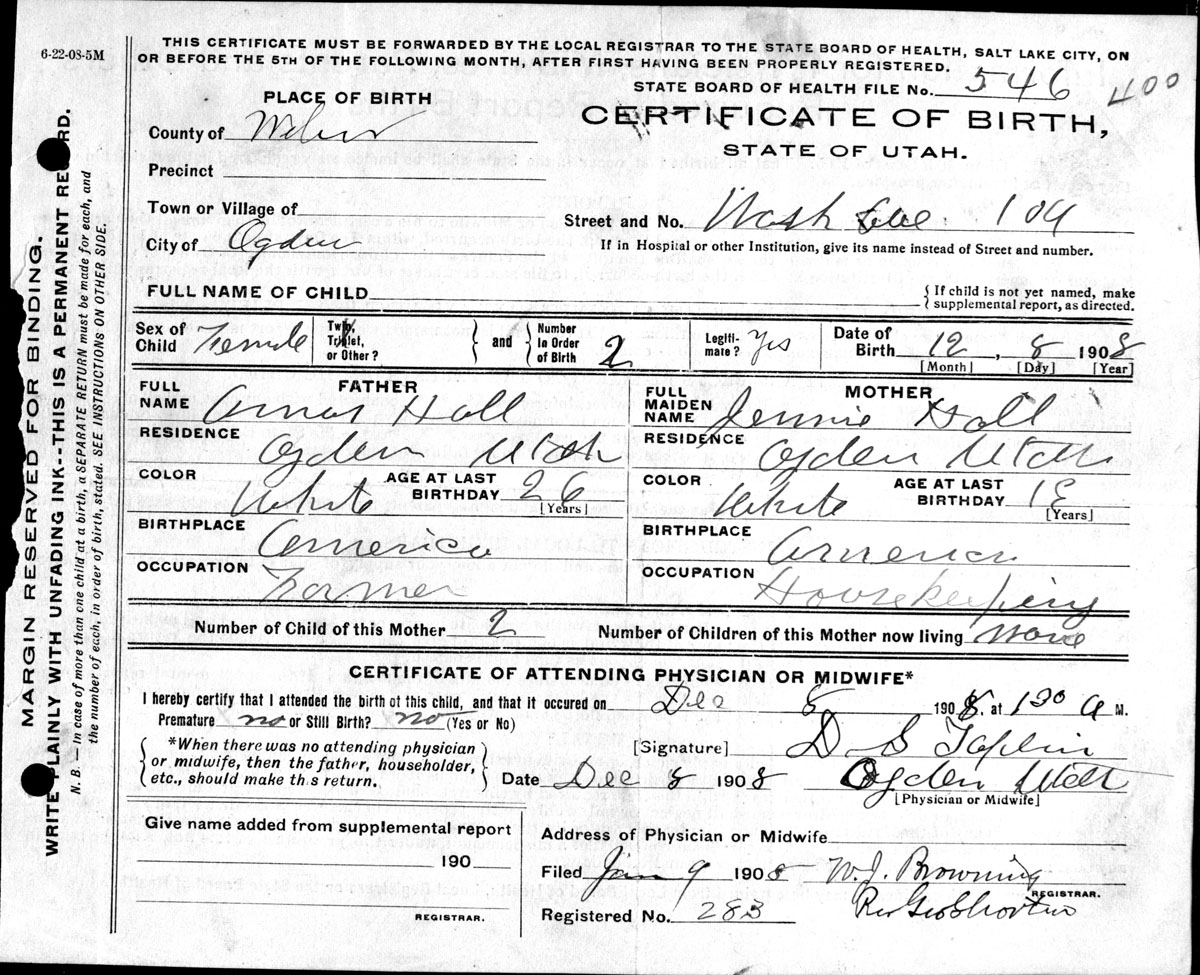 6-22-08-5M
THIS CERTIFICATE MUST BE FORWARDED BY THE LOCAL REGISTRAR TO THE STATE BOARD OF HEALTH, SALT LAKE CITY, ON
OR BEFORE THE 5TH OF THE FOLLOWING MONTH, AFTER FIRST HAVING BEEN PROPERLY REGISTERED.
STATE BOARD OF HEALTH FILE No. 546 400
PLACE OF BIRTH
CERTIFICATE OF BIRTH,
STATE OF UTAH.
County of Weber
Precinct
Town or Village of
Street and No. Wash Ave. 104
City of Ogden
If in Hospital or other Institution, give its name instead of Street and number.
FULL NAME OF CHILD
{ If child is not yet named, make
supplemental report, as directed.
Sex of Child Female
Twin, Triplet, or Other?
and
Number in Order of Birth 2
Legiti-mate? Yes
Date of Birth 12, 8 1908
[Month] [Day] [Year]
FATHER
FULL NAME Amos Hall
RESIDENCE Ogden Utah
COLOR White AGE AT LAST BIRTHDAY 26
[Years]
BIRTHPLACE America
OCCUPATION Farmer
MOTHER
FULL MAIDEN NAME Jennie Hall
RESIDENCE Ogden Utah
COLOR White AGE AT LAST BIRTHDAY 18
[Years]
BIRTHPLACE America
OCCUPATION Housekeeping
Number of Child of this Mother 2
Number of Children of this Mother now living None
CERTIFICATE OF ATTENDING PHYSICIAN OR MIDWIFE*
I hereby certify that I attended the birth of this child, and that it occured on Dec 8 1908. at 1 30 A M.
Premature no or Still Birth? no (Yes or No)
*When there was no attending physician
or midwife, then the father, householder,
etc., should make this return.
[Signature] D S
Date Dec 8 1908 Ogden Utah
[Physician or Midwife]
Give name added from supplemental report
190
REGISTRAR.
Address of Physician or Midwife
Filed Jan 9 1908 W. J. Browning
REGISTRAR.
Registered No. 283
MARGIN RESERVED FOR BINDING.
WRITE PLAINLY WITH UNFADING INK--THIS IS A PERMANENT RECORD.
N. B.—In case of more than one child at a birth, a SEPARATE RETURN must be made for each, and
the number of each, in order of birth, stated. SEE INSTRUCTIONS ON OTHER SIDE.